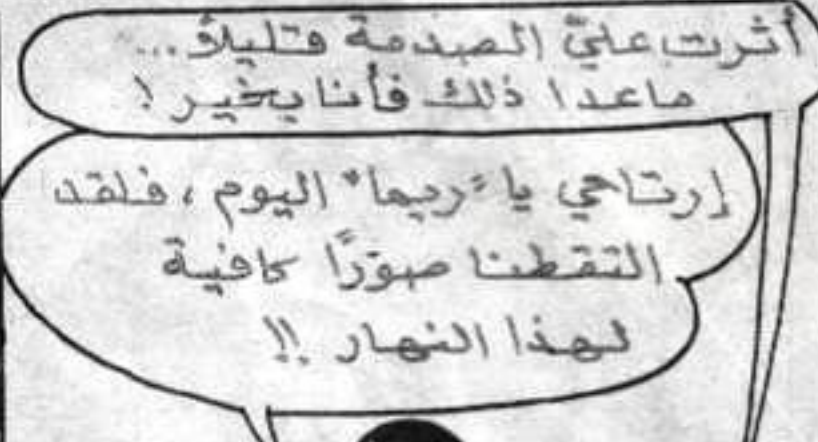 أثرت عليّ الصدمة قليلاً...
ماعدا ذلك فأنا بخير!
إرتاحي يا "ريما" اليوم، فلقد
التقطنا صورًا كافية
لهذا النهار!!